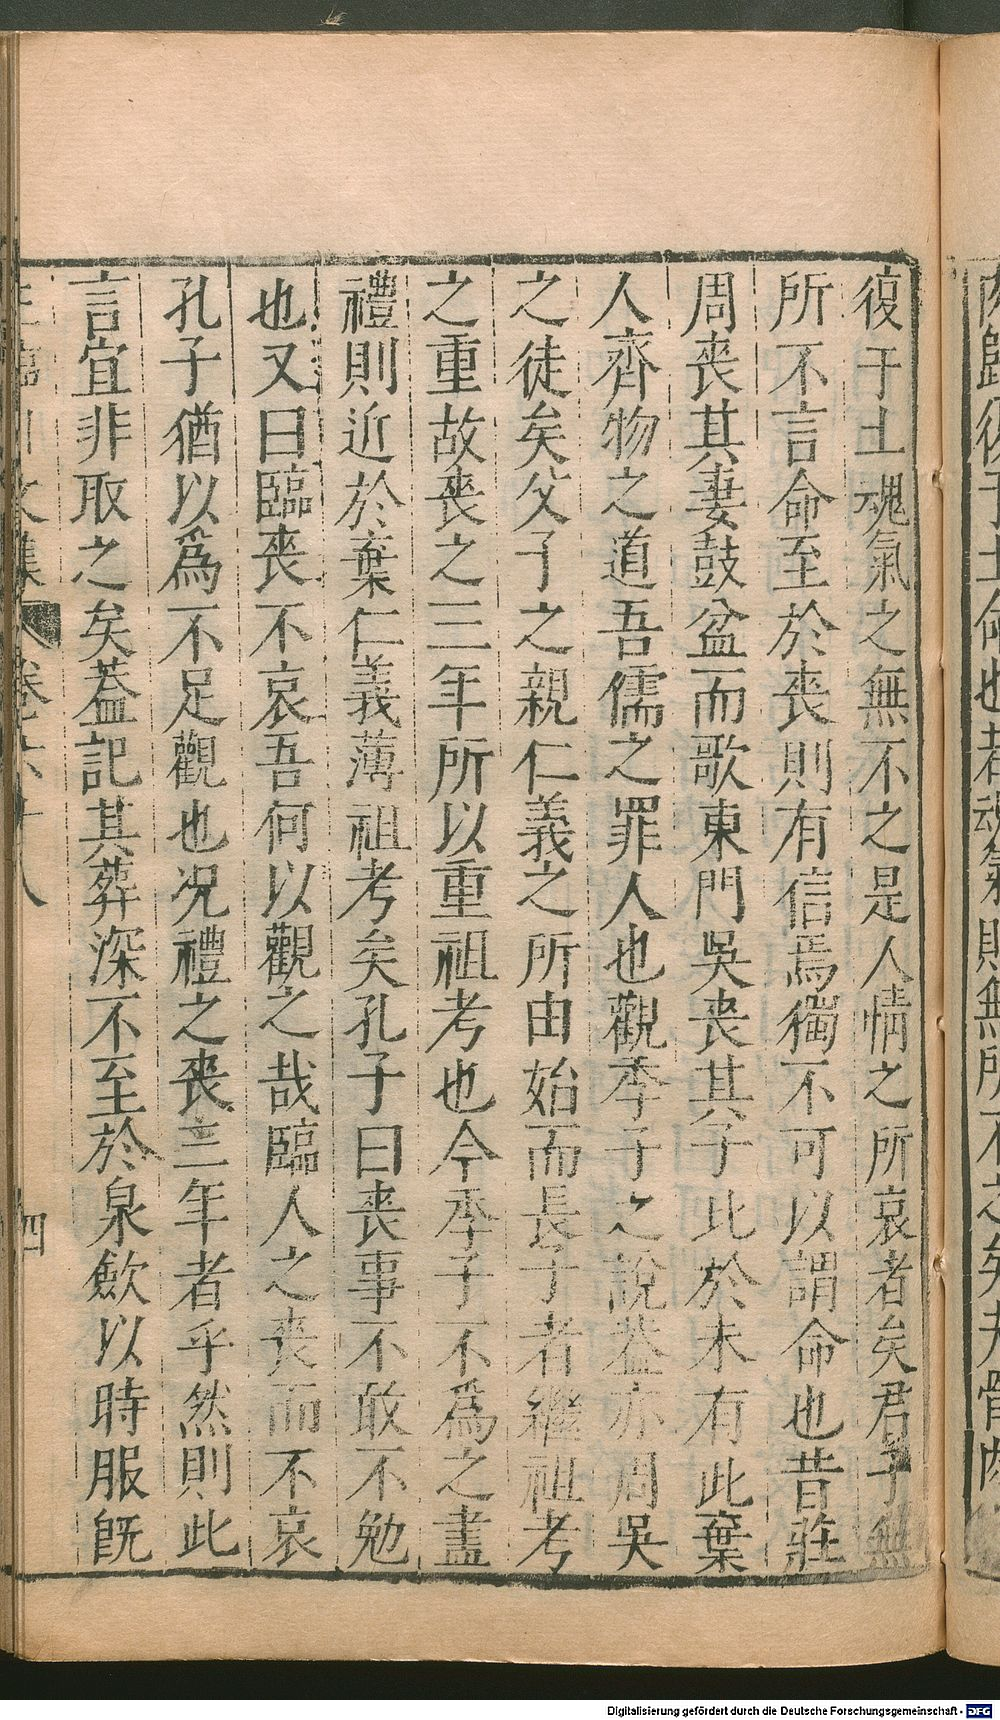 復于土魂氣之無不之是人情之所哀者矣君子無
所不言命至於喪則有信焉獨不可以謂命也昔莊
周喪其妻鼓盆而歌東門吳喪其子比於未有此棄
人齊物之道吾儒之罪人也觀季子之說蓋亦周吳
之徒矣父子之親仁義之所由始而長子者繼祖考
之重故喪之三年所以重祖考也今季子不爲之盡
禮則近於棄仁義薄祖考矣孔子曰喪事不敢不勉
也又曰臨喪不哀吾何以觀之哉臨人之喪而不哀
孔子猶以爲不足觀也况禮之喪三年者乎然則此
言宜非取之矣蓋記其葬深不至於泉斂以時服旣
文集 卷六十八 四
Digitalisierung gefördert durch die Deutsche Forschungsgemeinschaft - DFG